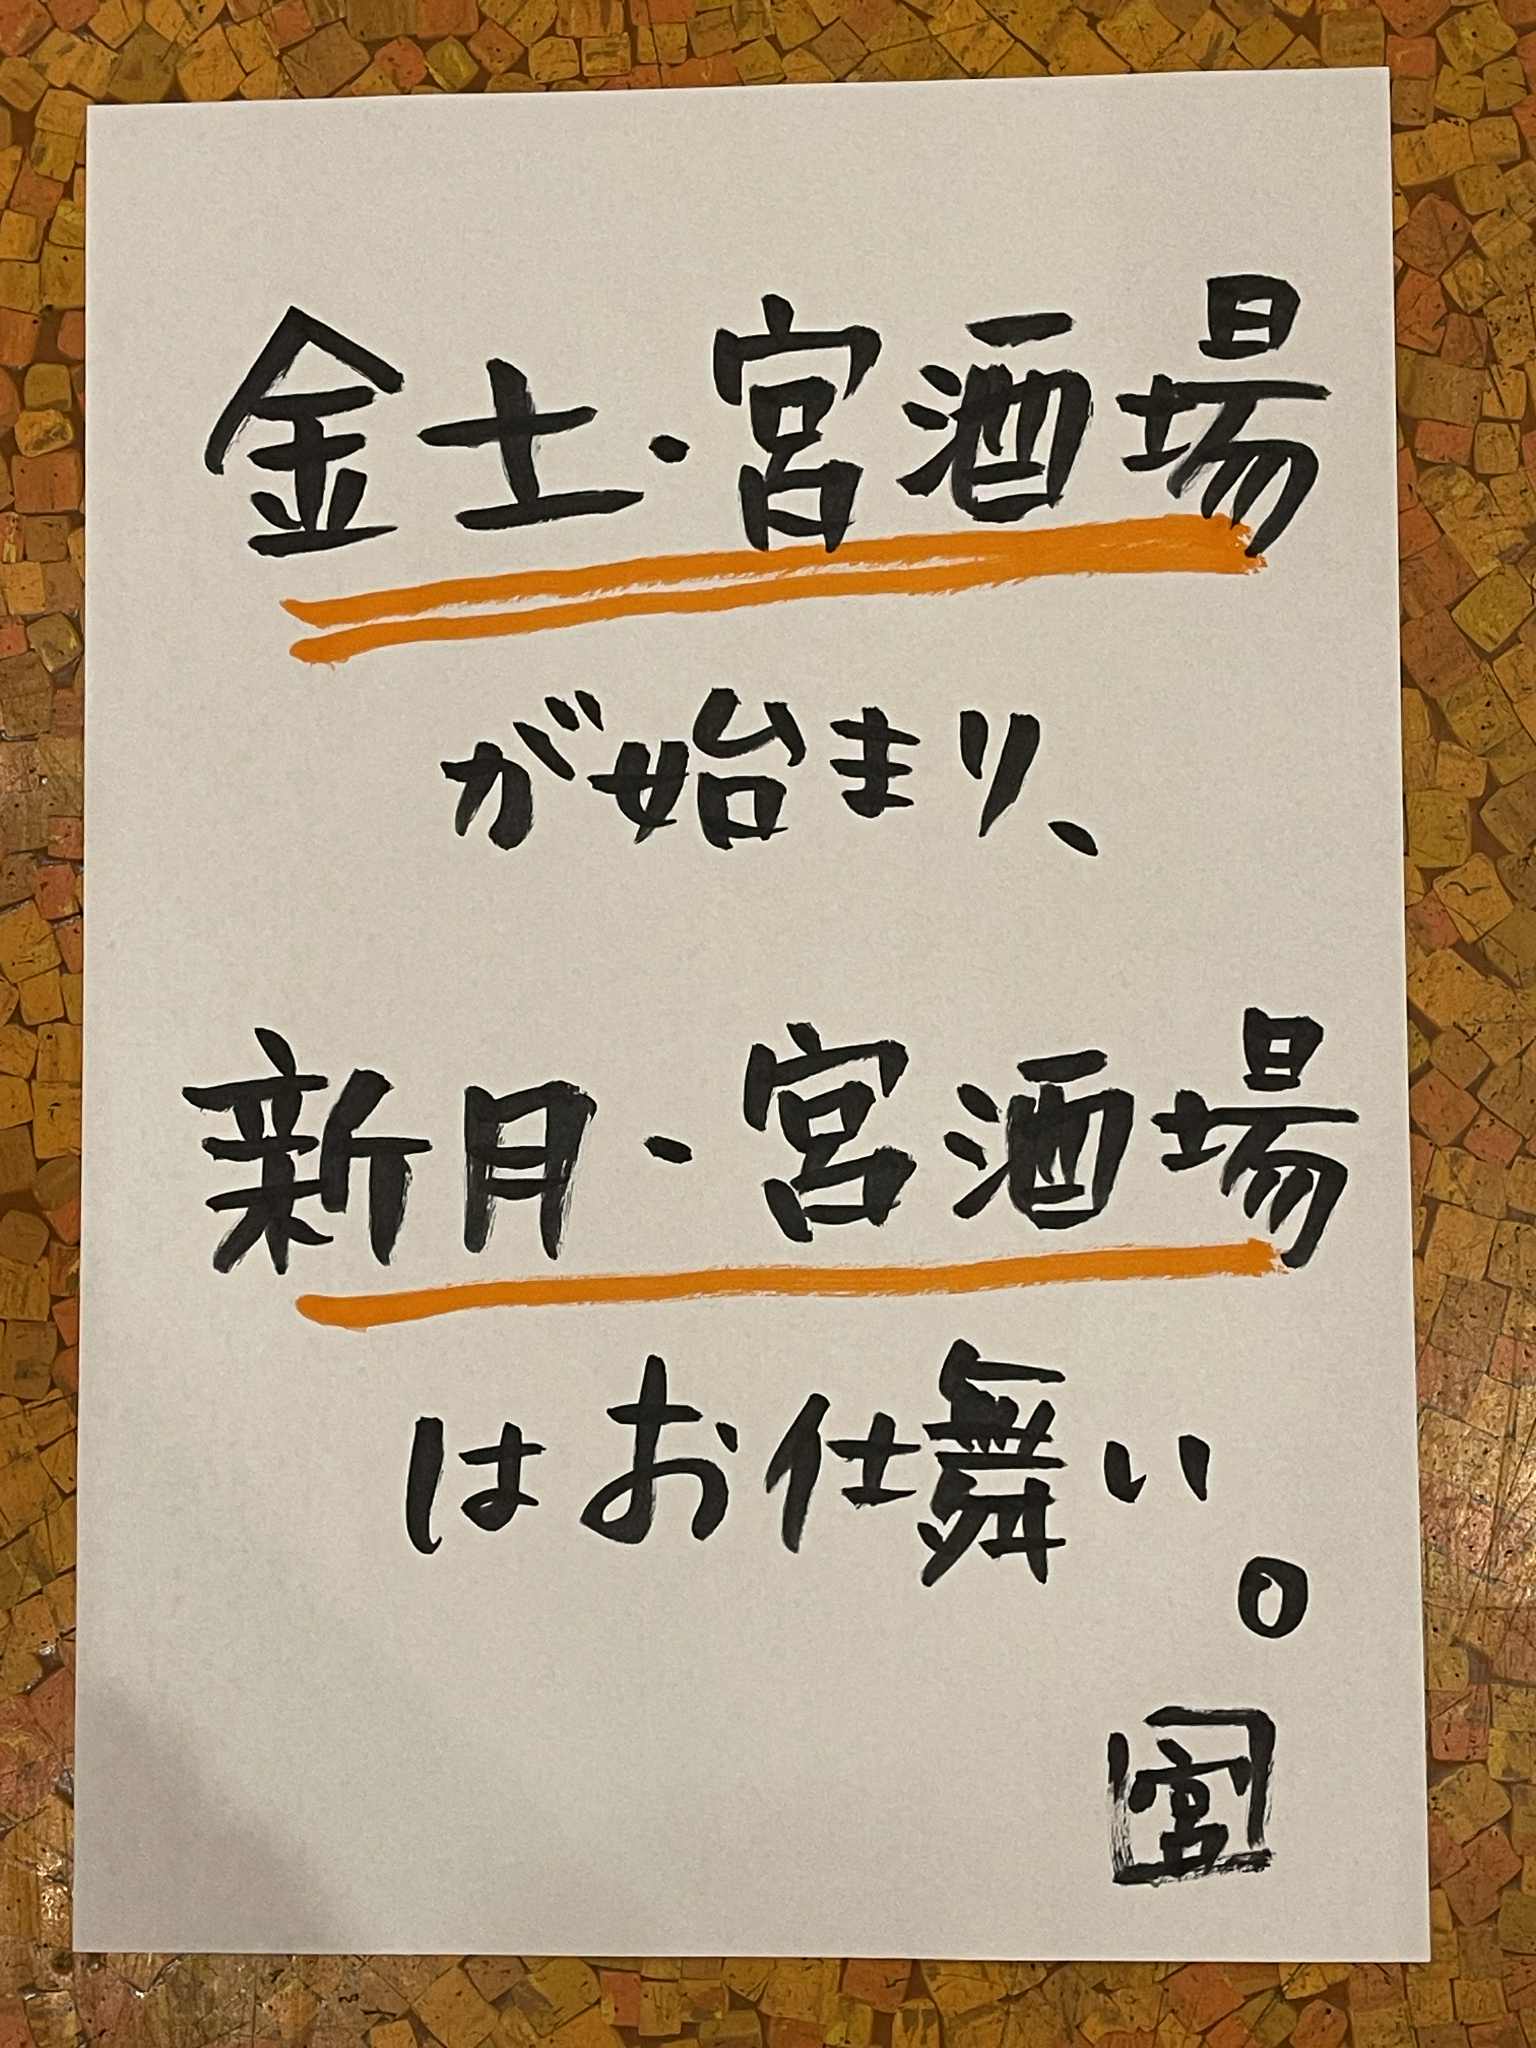 金土・宮酒場
が始まり、
新月・宮酒場
はお仕舞い。
宮